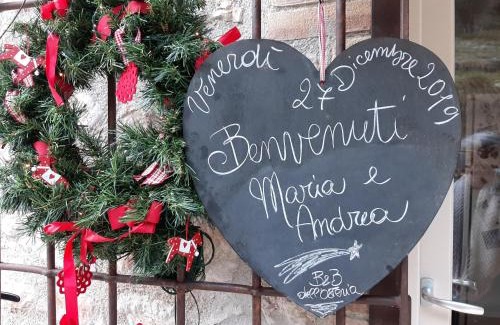 Venerdì
27 Dicembre 2019
Benvenuti
Maria e
Andrea
B&B
dell'Osteria